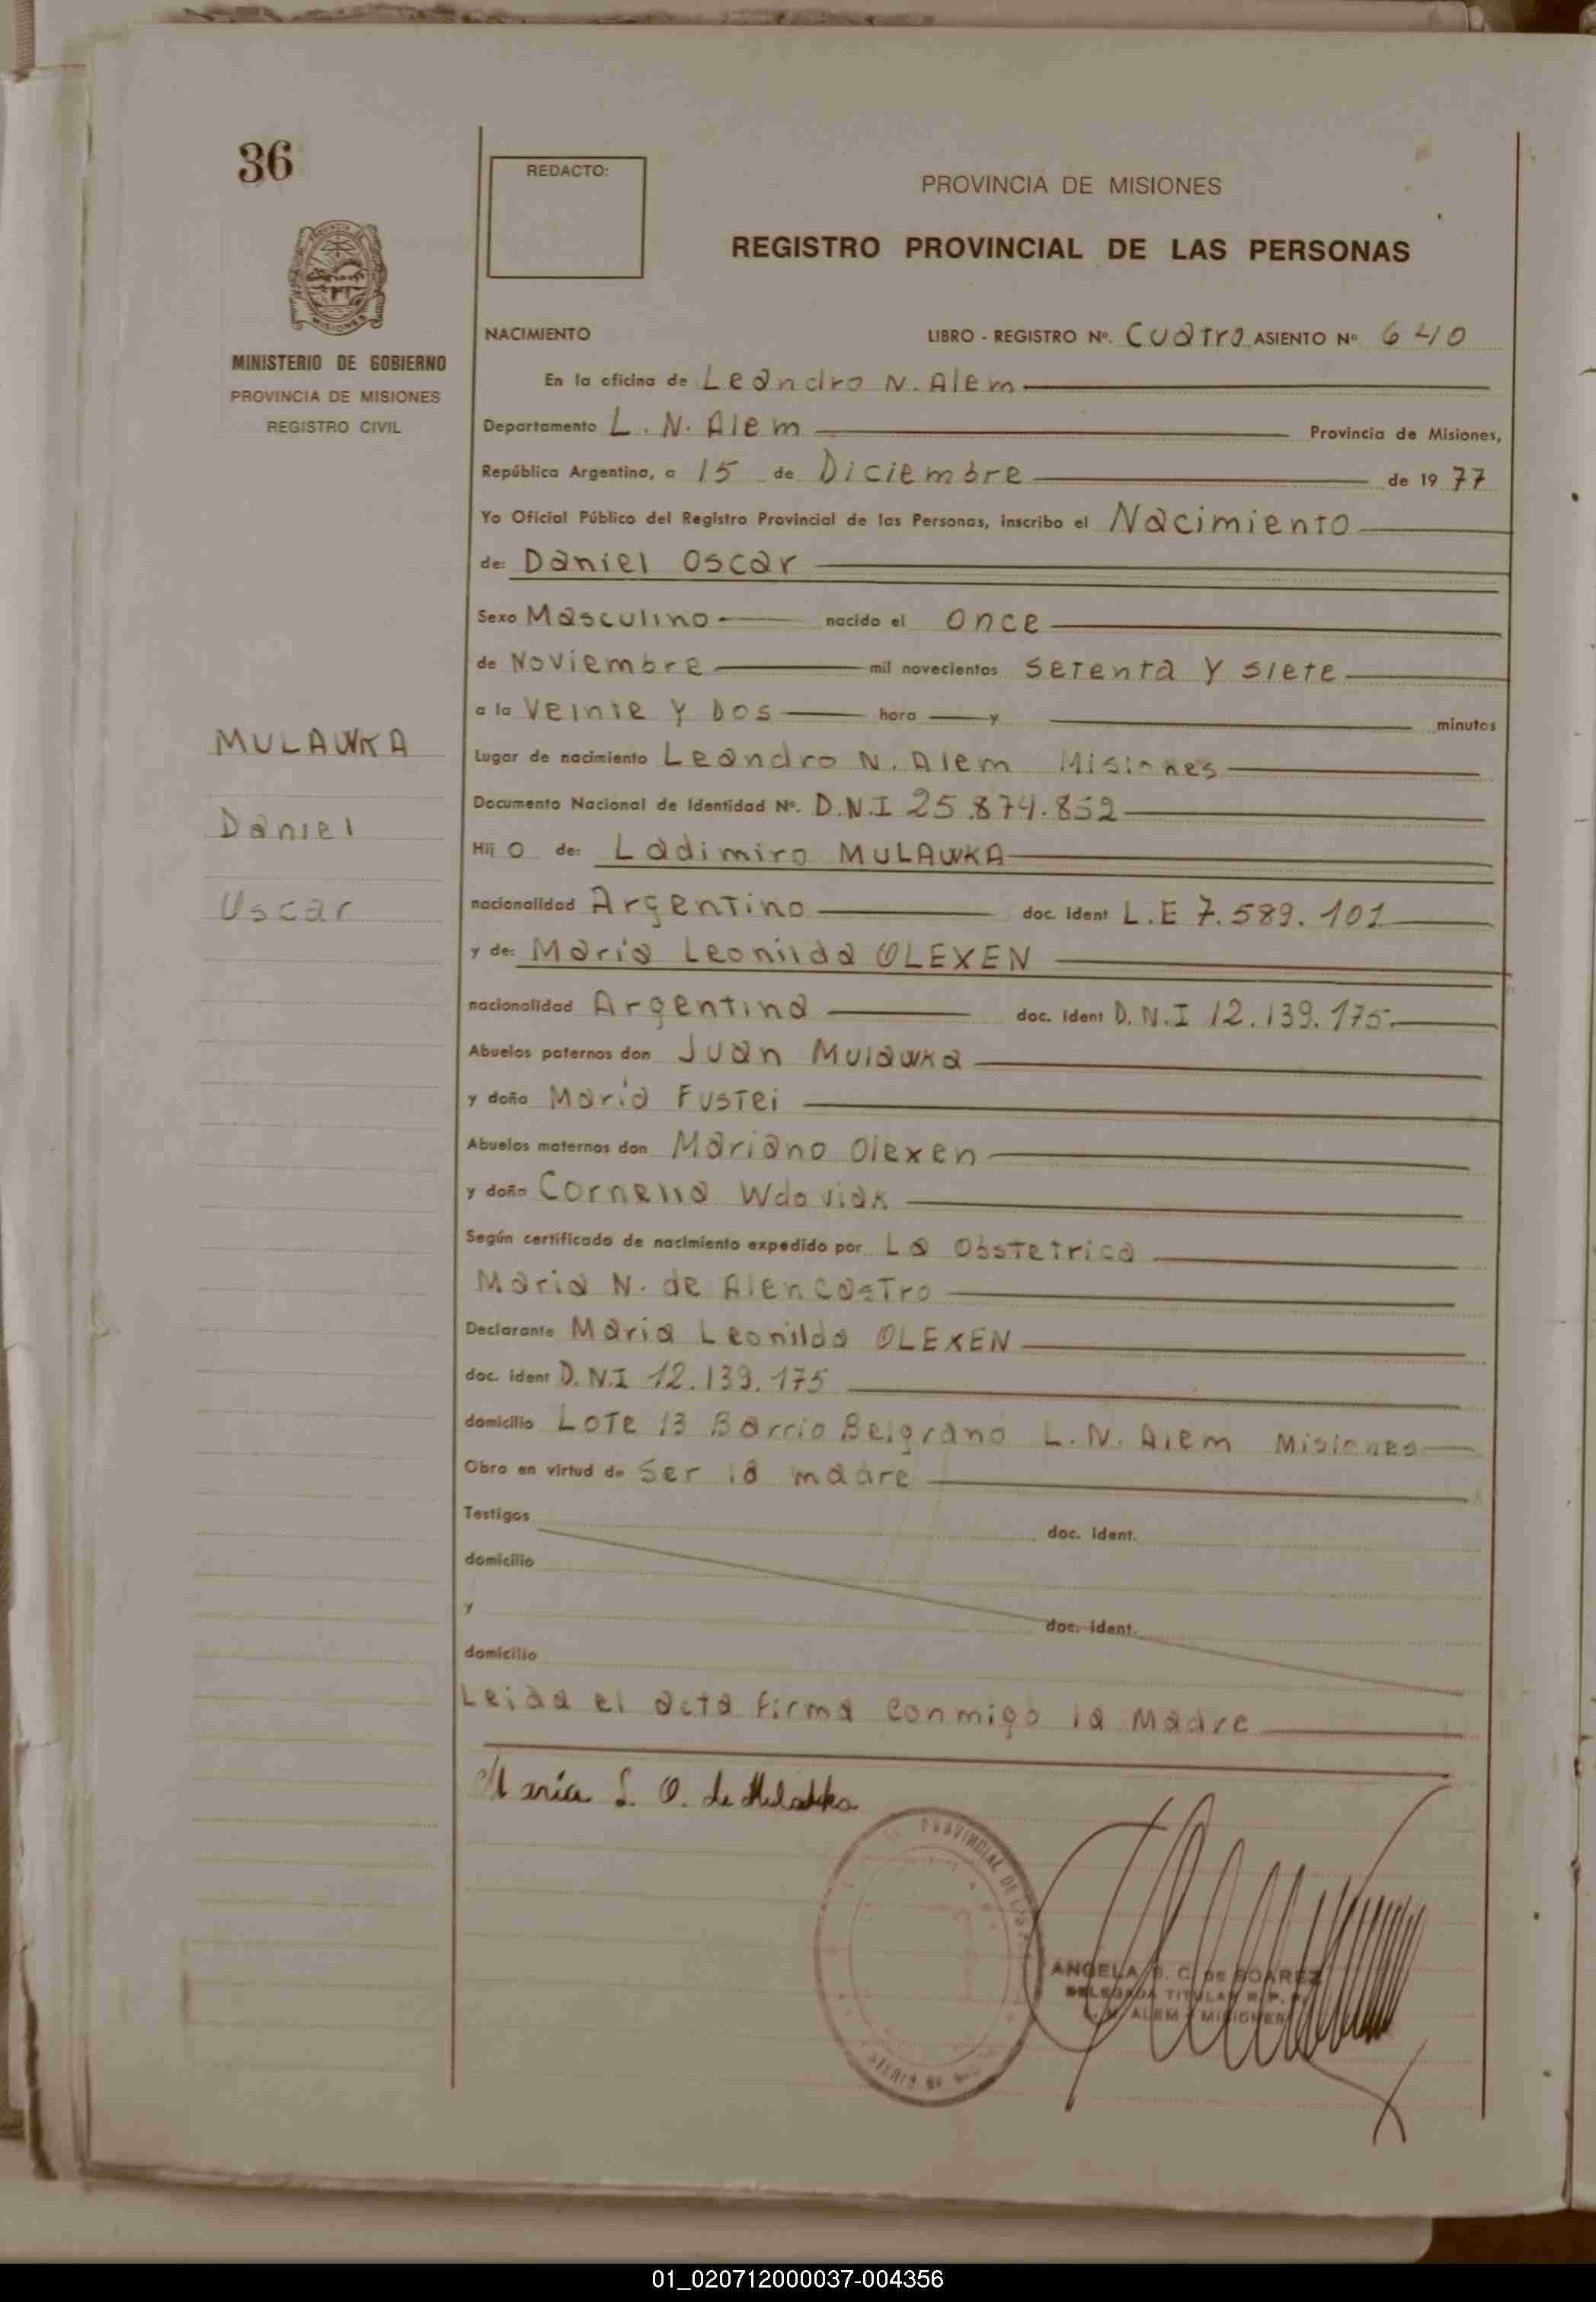 36
REDACTO:
PROVINCIA DE MISIONES
REGISTRO PROVINCIAL DE LAS PERSONAS
MINISTERIO DE GOBIERNO
PROVINCIA DE MISIONES
REGISTRO CIVIL
NACIMIENTO LIBRO - REGISTRO Nº. Cuatro ASIENTO Nº 640
En la oficina de Leandro N. Alem
Departamento L. N. Alem Provincia de Misiones,
República Argentina, a 15 de Diciembre de 19 77
Yo Oficial Público del Registro Provincial de las Personas, inscribo el Nacimiento
de: Daniel Oscar
Sexo Masculino nacido el Once
de Noviembre mil novecientos Setenta y siete
a la Veinte y Dos hora y minutos
MULAWKA
Daniel
Oscar
Lugar de nacimiento Leandro N. Alem Misiones
Documento Nacional de Identidad Nº. D.N.I 25.874.852
Hij o de: Ladimiro MULAWKA
nacionalidad Argentino doc. ident L.E 7.589.101
y de: Maria Leonilda OLEXEN
nacionalidad Argentina doc. ident D.N.I 12.139.175
Abuelos paternos don Juan Mulawka
y doña Maria Fustei
Abuelos maternos don Mariano Olexen
y doña Cornelia Wdoviak
Según certificado de nacimiento expedido por La Obstetrica
Maria N. de Alencastro
Declarante Maria Leonilda OLEXEN
doc. ident D.N.I 12.139.175
domicilio Lote 13 Barrio Belgrano L.N. Alem Misiones
Obra en virtud de Ser la madre
Testigos doc. ident.
domicilio
y doc. ident.
domicilio
Leida el acta firma conmigo la Madre
Maria L. O. de Mulawka
PROVINCIAL DE
ANGELA S. C. DE SOAREZ
DELEGADA TITULAR R. P. P.
ALEM - MISIONES
01_020712000037-004356